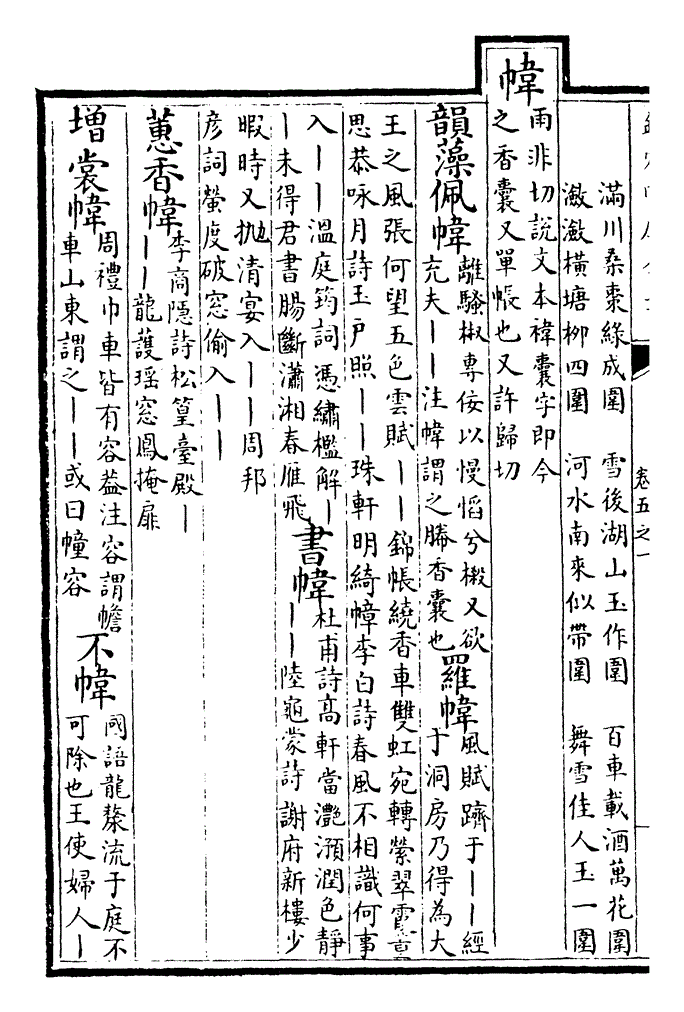 卷五之一
滿川桑棗綠成圍 雪後湖山玉作圍 百車載酒萬花圍
瀲瀲橫塘柳四圍 河水南來似帶圍 舞雪佳人玉一圍
幃
雨非切說文本褘囊字即今
之香囊又單帳也又許歸切
韻藻佩幃
離騷椒專佞以慢慆兮樧又欲
充夫丨丨注幃謂之幐香囊也
羅幃
風賦躋于丨丨經
于洞房乃得為大
王之風張何望五色雲賦丨丨錦帳繞香車雙虹宛轉縈翠霓
思恭咏月詩玉戶照丨丨珠軒明綺幛李白詩春風不相識何事
入丨丨溫庭筠詞憑繡檻解丨
丨未得君書腸斷瀟湘春雁飛
書幃
杜甫詩高軒當灔澦潤色靜
丨丨陸龜蒙詩謝府新樓少
暇時又拋清宴入丨丨周邦
彥詞螢度破窓偷入丨丨
蕙香幃
李商隱詩松篁臺殿丨
丨丨龍護瑤窓鳳掩扉
增裳幃
周禮巾車皆有容葢注容謂幨
車山東謂之丨丨或曰幢容
不幃
國語龍漦流于庭不
可除也王使婦人丨